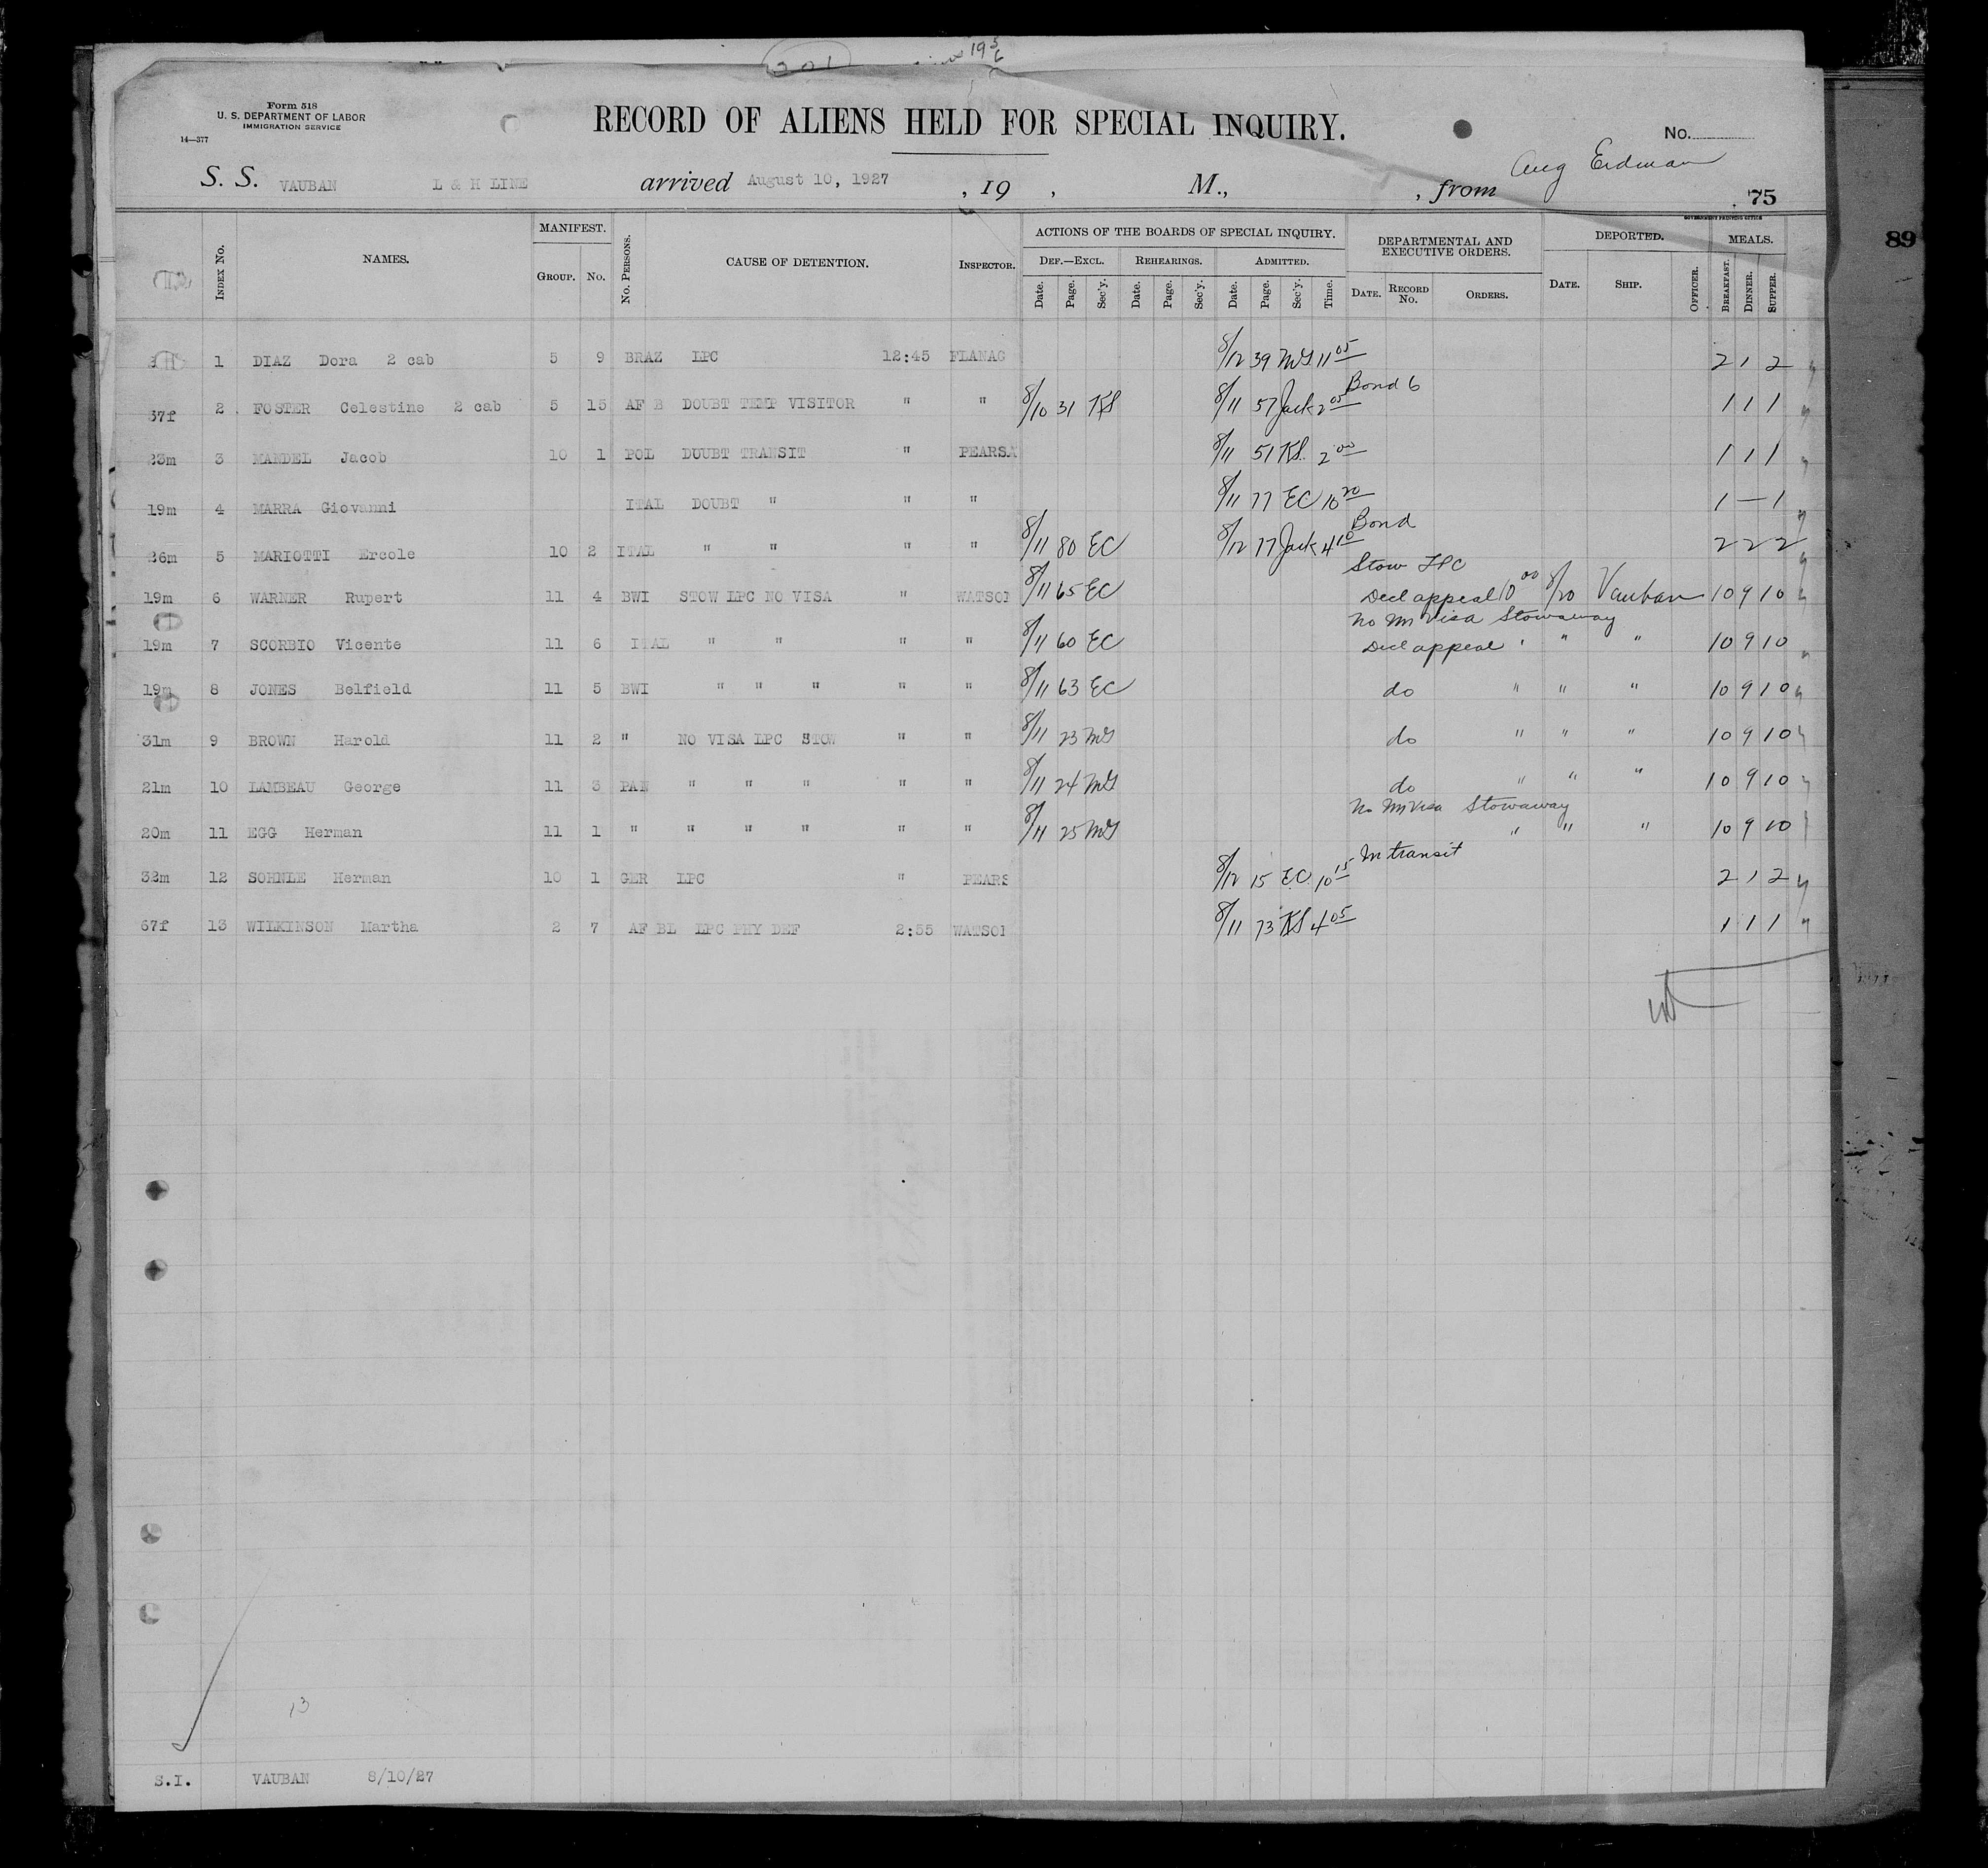 Form 518
U. S. DEPARTMENT OF LABOR
IMMIGRATION SERVICE
14—377
RECORD OF ALIENS HELD FOR SPECIAL INQUIRY.
No.
S. S. VAUBAN L & H LINE arrived August 10, 1927 , 19 , M., , from Aug Erdman
75
GOVERNMENT PRINTING OFFICE
89
INDEX No. NAMES. MANIFEST. GROUP. No. No. PERSONS. CAUSE OF DETENTION. INSPECTOR. ACTIONS OF THE BOARDS OF SPECIAL INQUIRY. DEF.—EXCL. Date. Page. Sec'y. REHEARINGS. Date. Page. Sec'y. ADMITTED. Date. Page. Sec'y. Time. DEPARTMENTAL AND EXECUTIVE ORDERS. DATE. RECORD No. ORDERS. DEPORTED. DATE. SHIP. OFFICER. MEALS. BREAKFAST. DINNER. SUPPER.
1 DIAZ Dora 2 cab 5 9 BRAZ LPC 12:45 FLANAG 8/12 39 MG 11 05 2 1 2
Bond 6
37f 2 FOSTER Celestine 2 cab 5 15 AF B DOUBT TEMP VISITOR " " 8/10 31 KS 8/11 57 Jack 2 05 1 1 1
23m 3 MANDEL Jacob 10 1 POL DOUBT TRANSIT " PEARSA 8/11 51 KS. 2 00 1 1 1
19m 4 MARRA Giovanni ITAL DOUBT " " " 8/11 77 EC 10 20 1 — 1
Bond
26m 5 MARIOTTI Ercole 10 2 ITAL " " " " 8/11 80 EC 8/12 77 Jack 4 10 2 2 2
Stow LPC
19m 6 WARNER Rupert 11 4 BWI STOW LPC NO VISA " WATSON 8/11 65 EC Decl appeal 10 00 8/20 Vauban 10 9 10
No Im Visa Stowaway
19m 7 SCORBIO Vicente 11 6 ITAL " " " " 8/11 60 EC Decl appeal " " " 10 9 10
19m 8 JONES Belfield 11 5 BWI " " " " " 8/11 63 EC do " " " 10 9 10
31m 9 BROWN Harold 11 2 " NO VISA LPC STOW " " 8/11 23 MG do " " " 10 9 10
21m 10 LAMBEAU George 11 3 PAN " " " " " 8/11 24 MG do " " " 10 9 10
No Im Visa Stowaway
20m 11 EGG Herman 11 1 " " " " " " 8/11 25 MG " " " 10 9 10
In transit
32m 12 SOHNLE Herman 10 1 GER LPC " PEARS 8/12 15 EC. 10 15 2 1 2
67f 13 WILKINSON Martha 2 7 AF BL LPC PHY DEF 2:55 WATSON 8/11 73 KS 4 05 1 1 1
13
S.I. VAUBAN 8/10/27